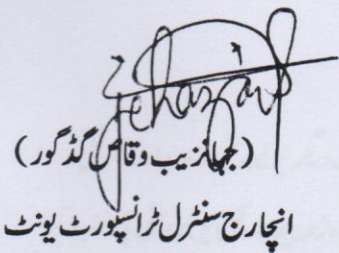 (جہانزیب وقاص گڈگور)
انچارج سنٹرل ٹرانسپورٹ یونٹ